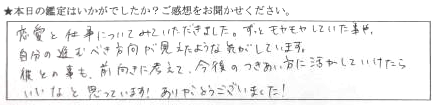 ★本日の鑑定はいかがでしたか？ご感想をお聞かせください。
恋愛と仕事についてみていただきました。ずっとモヤモヤしていた事や、
自分の進むべき方向が見えたような気がしています。
彼との事も、前向きに考えて、今後のつきあい方に活かしていけたら
いいなと思っています！ありがとうございました！